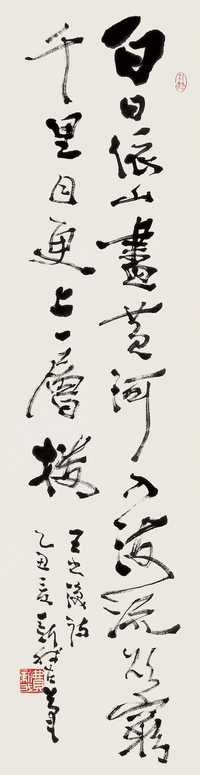 白日依山盡黃河入海流欲窮
千里目更上一層樓
王之渙詩
乙丑夏